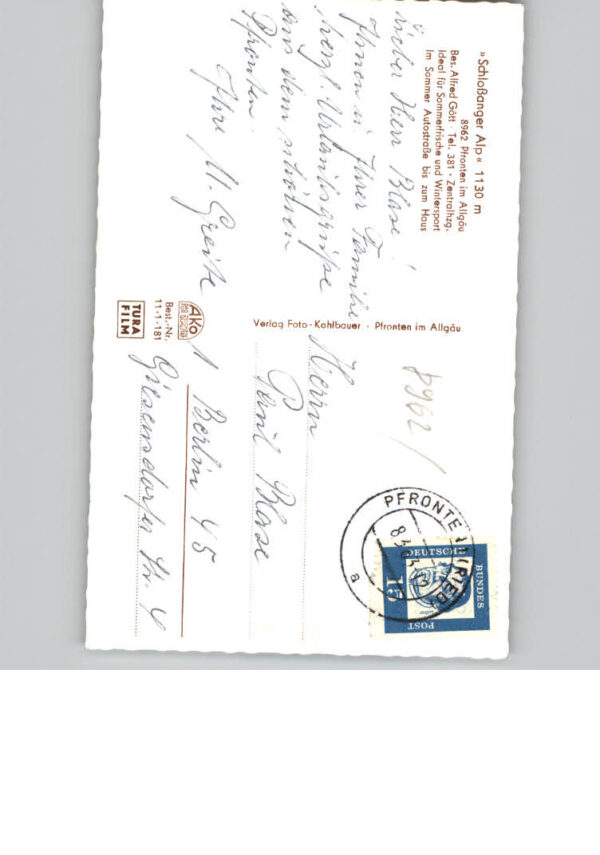 »Schloßanger Alp« 1130 m
8962 Pfronten im Allgäu
Bes. Alfred Gött · Tel. 381 · Zentralhzg.
Ideal für Sommerfrische und Wintersport
Im Sommer Autostraße bis zum Haus
Lieber Herr Blase!
Ihnen u. Ihrer Familie
herzl. Urlaubsgrüße
aus dem schönen
Pfronten.
Ihre M. Greite
AKO
Best.-Nr.
11·1·181
TURA
FILM
Verlag Foto-Kohlbauer · Pfronten im Allgäu
8962/
PFRONTEN (RIED)
a
DEUTSCHE
BUNDES
POST
15
Herrn
Paul Blase
1 Berlin 45
Giesensdorfer Str. 4